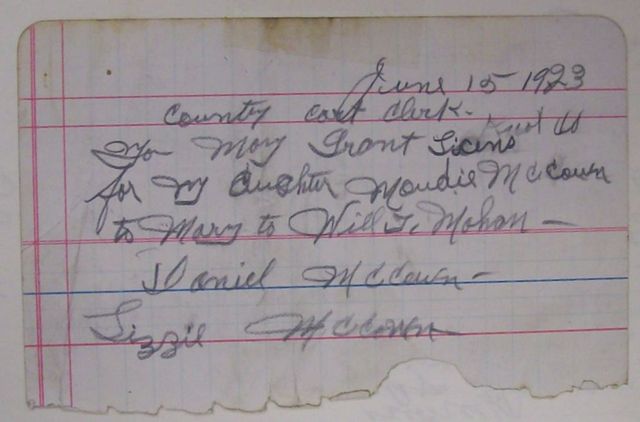 June 15 1923
County cort clerk.
you Mary Grant Licens
for my daughter Maudie McCown
to Mary to Will T. Mohan —
Daniel McCown —
Lizzie McCown